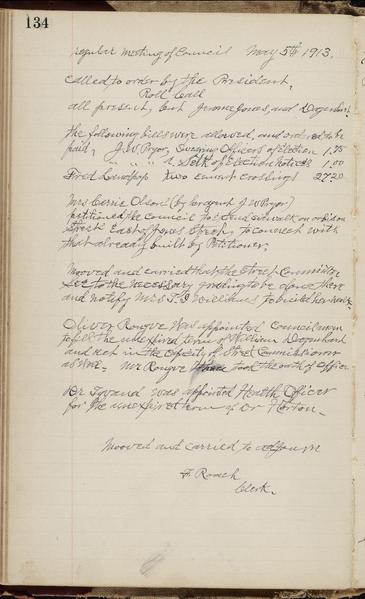 134
regular meeting of Council May 5th 1913.
called to order by the President,
Roll Call
all present, but Jerome Jones, and Degenhart
the following bills were allowed, and ordered to be
paid, J.W. Pryor, Swearing Officers of Election 1.75
" " " 2 Setts of Election Notices 1.00
Fred two cement crossings 27.20
Mrs Carrie Olson (by Sergent J W Pryor)
petitioned the Council to extend sidewalk on
Street East of Jones Street, to connect with
that already built by Petitioner.
Mooved and carried that the Street Committee
see to the necessary grading to be done there
and notify Mrs Williams to build her walk.
Oliver Rongve was appointed Councilman
to fill the unexpired term of William Degenhart
and act in the capacity of Street Commissioner
as well. Mr Rongve took the oath of Office
Dr was appointed Health Officer
for the unexpired term of Dr Horton.
Mooved and carried to adjourn
F. Roach
Clerk.